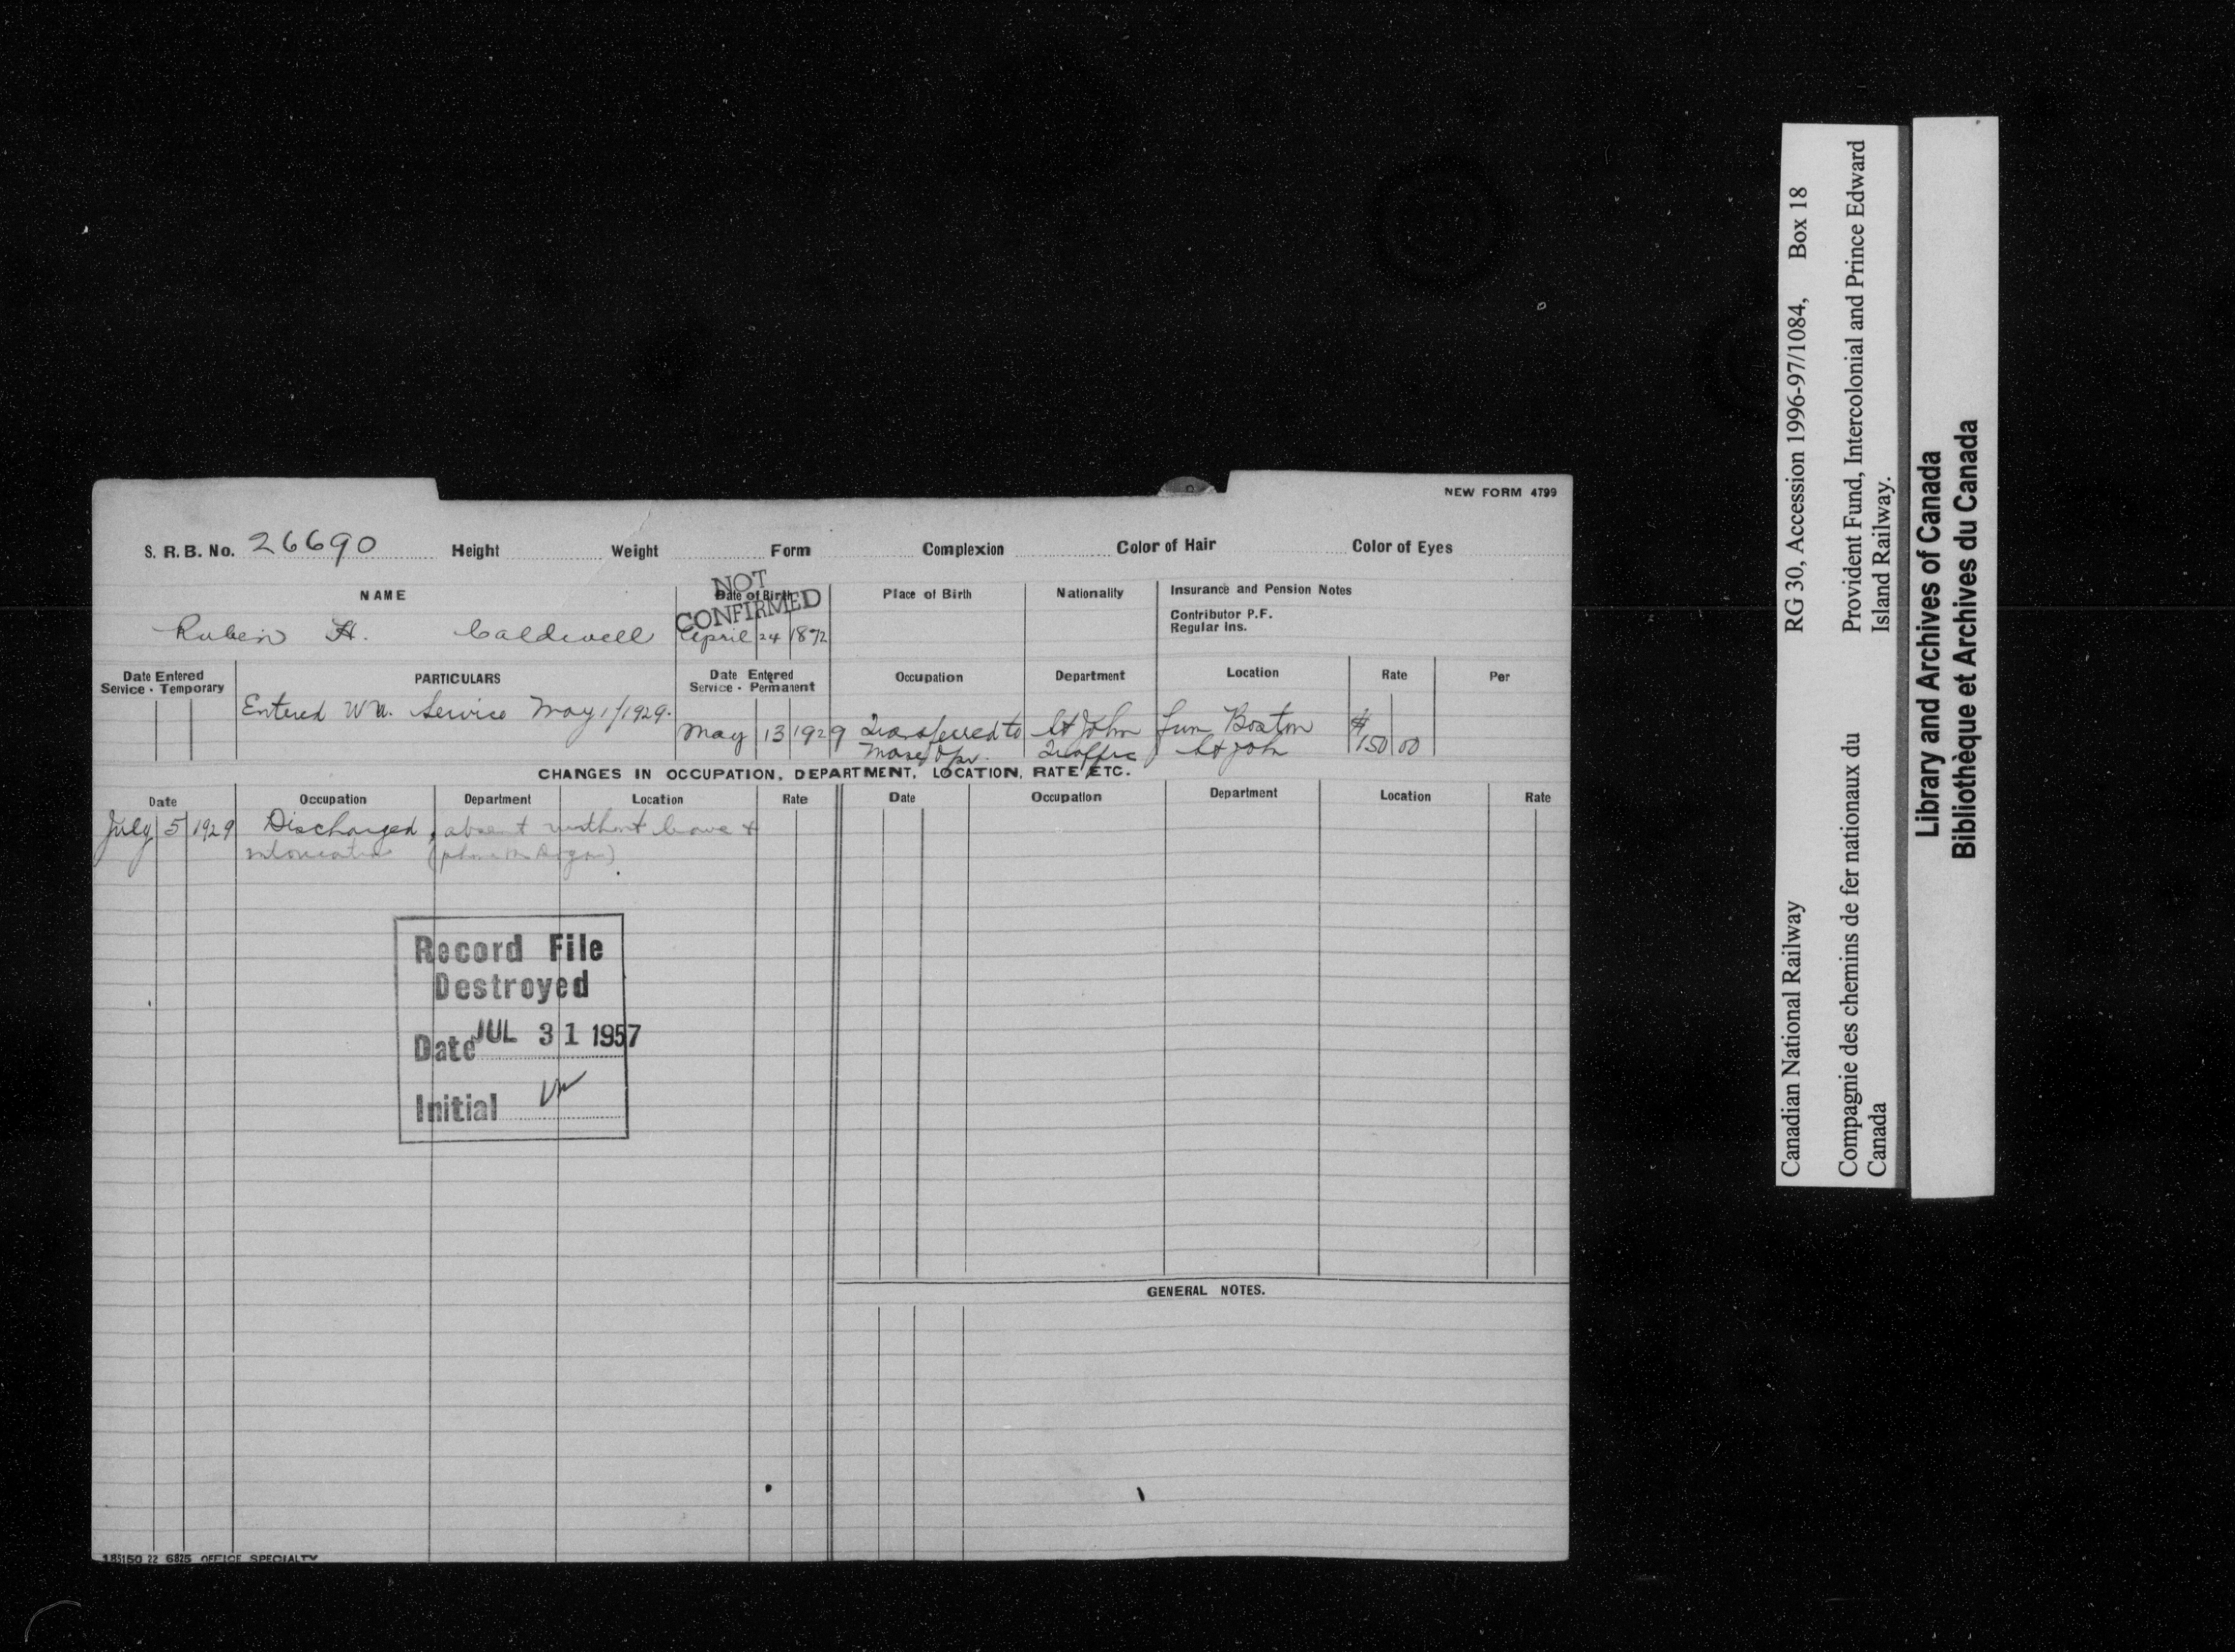 NEW FORM 4799
S. R. B. No. 26690 Height Weight Form Complexion Color of Hair Color of Eyes
NAME Date of Birth Place of Birth Nationality Insurance and Pension Notes
NOT CONFIRMED
Contributor P.F.
Regular Ins.
Ruben H. Caldwell April 24 1872
Date Entered Service - Temporary PARTICULARS Date Entered Service - Permanent Occupation Department Location Rate Per
Entered W.U. Service May 1/1929.
May 13 1929 Transferred to St John from Boston $
Morse Opr. Traffic St John 150 00
CHANGES IN OCCUPATION, DEPARTMENT, LOCATION, RATE ETC.
Date Occupation Department Location Rate Date Occupation Department Location Rate
July 5 1929 Discharged, absent without leave &
intoxicated
Record File
Destroyed
Date JUL 31 1957
Initial
GENERAL NOTES.
185150 22 6825 OFFICE SPECIALTY
Canadian National Railway RG 30, Accession 1996-97/1084, Box 18
Compagnie des chemins de fer nationaux du Provident Fund, Intercolonial and Prince Edward
Canada Island Railway.
Library and Archives of Canada
Bibliothèque et Archives du Canada